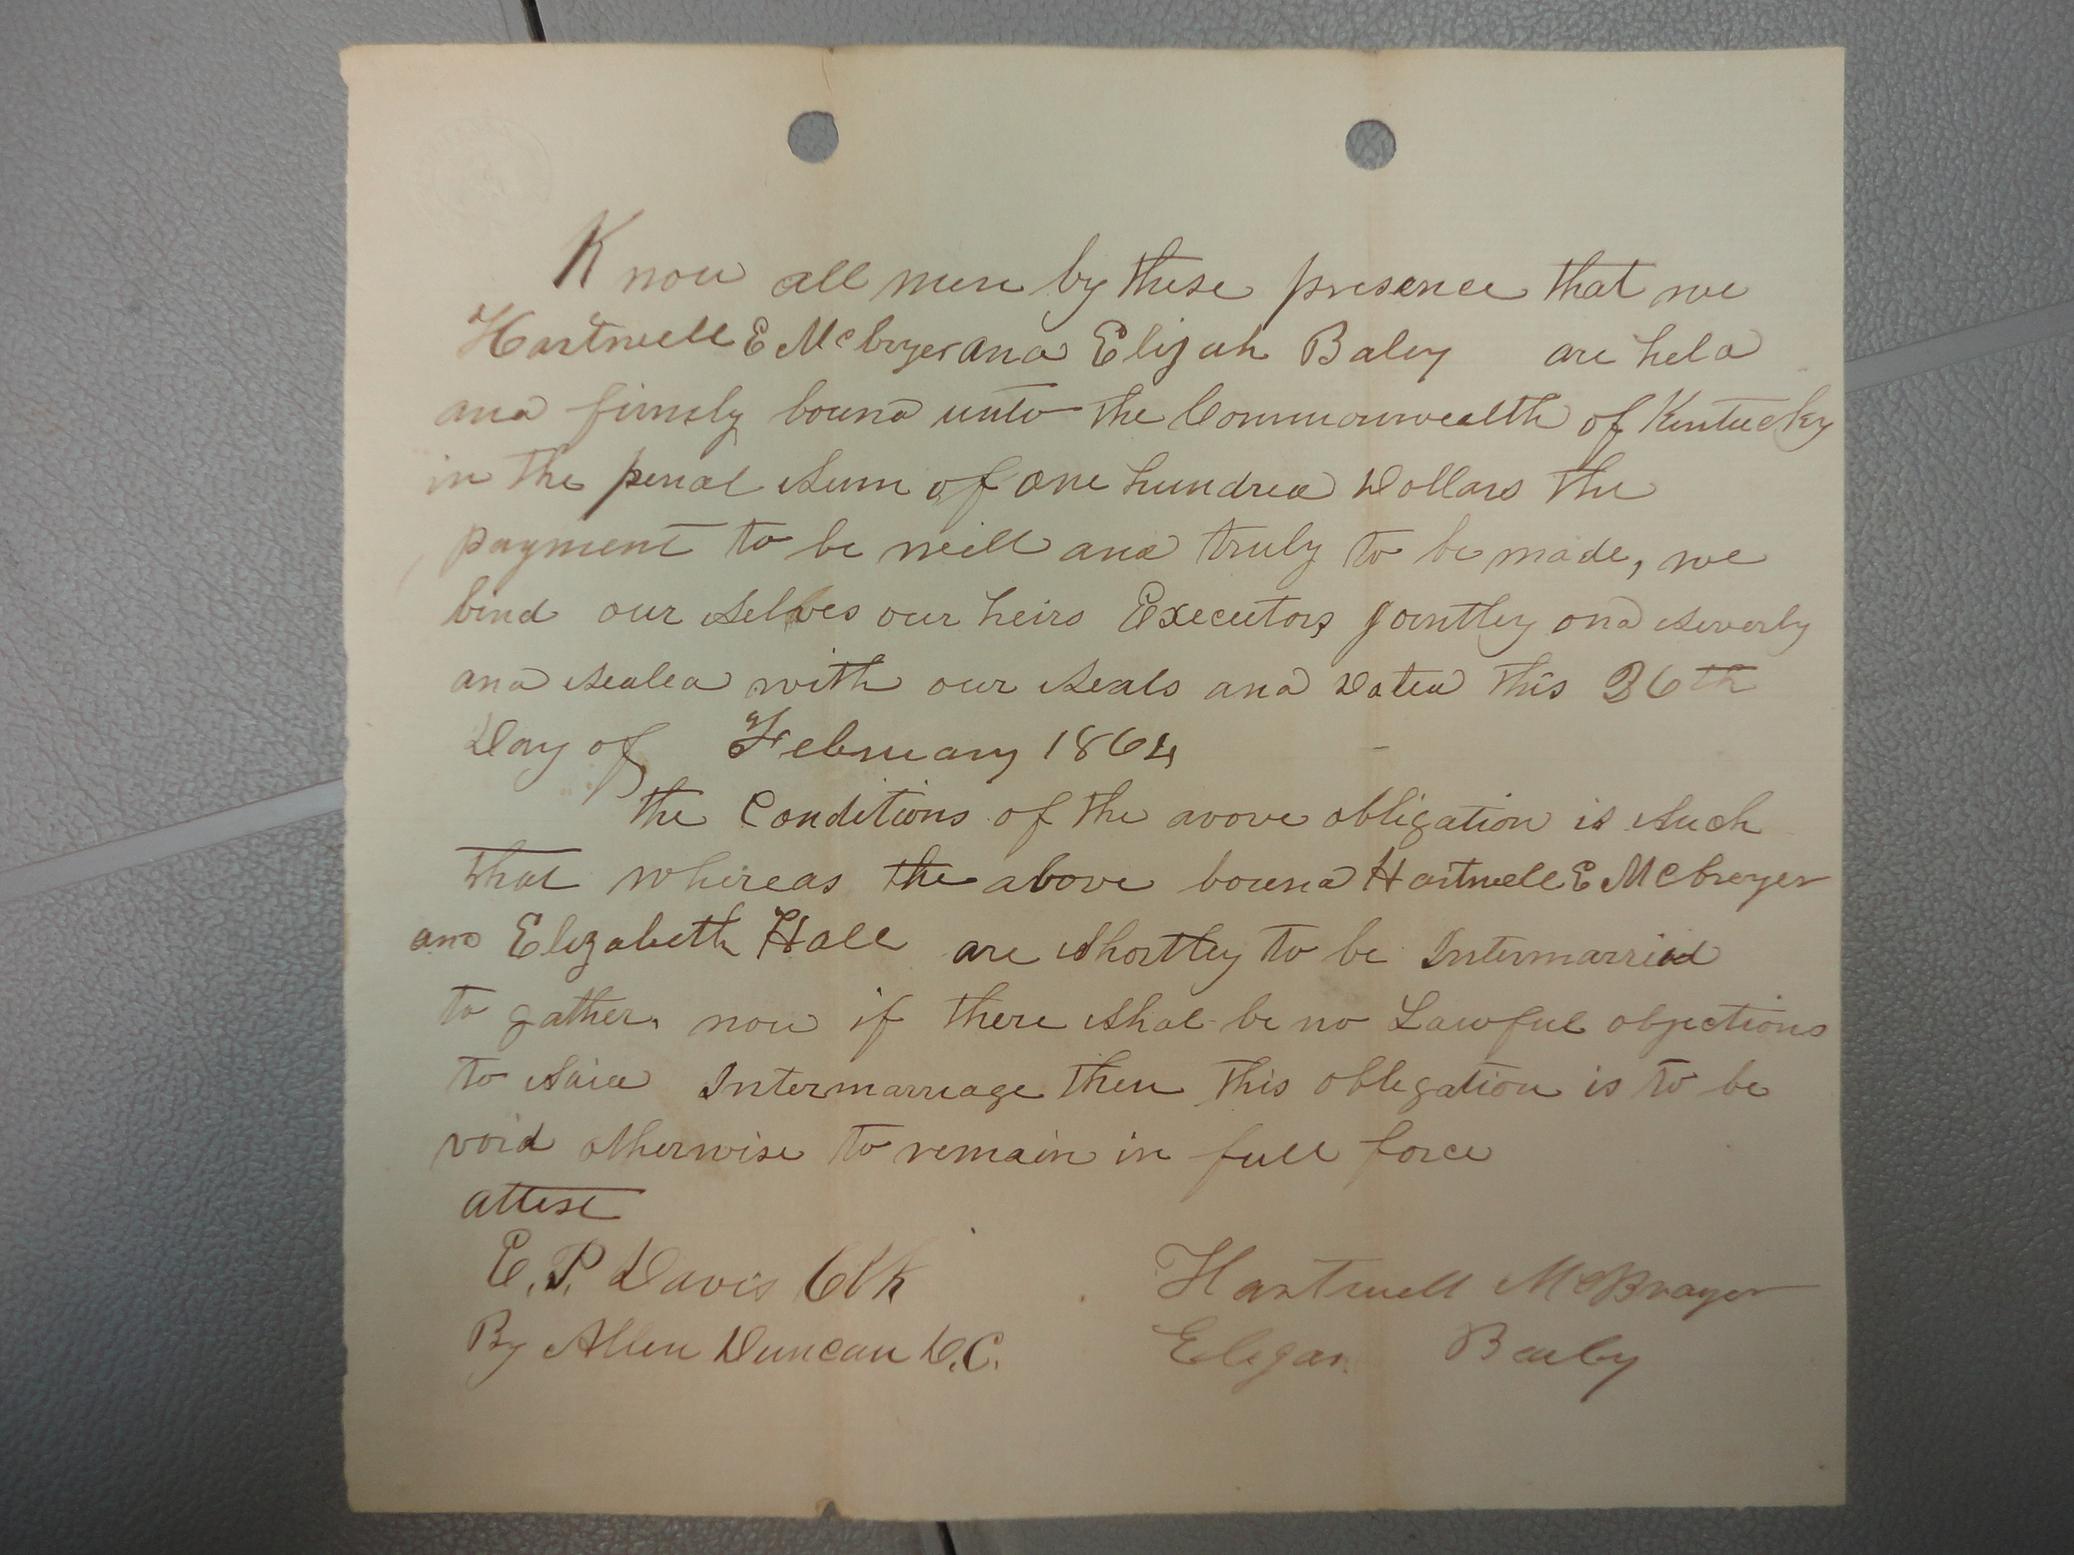 Know all men by these presence that we
Hartwell E McbryerAnd Elijah Baley are held
and firmly bound unto the Commonwealth of Kentucky
in the penal sum of one hundred Dollars the
payment to be well and truly to be made, we
bind our selves our heirs Executors Jointley and severly
and sealed with our seals and Dated this 26th
Day of February 1864
the Conditions of the above obligation is such
that whereas the above bound Hartwell E Mcbreyer
and Elizabeth Hall are shortley to be Intermarried
to gather. now if there shal be no Lawful objections
to said Intermarriage then this obligation is to be
void otherwise to remain in full force
attest
E. P. Davis Clk
Hartwell McBrayer
By Allen Duncan D.C.
Elegan Bauley